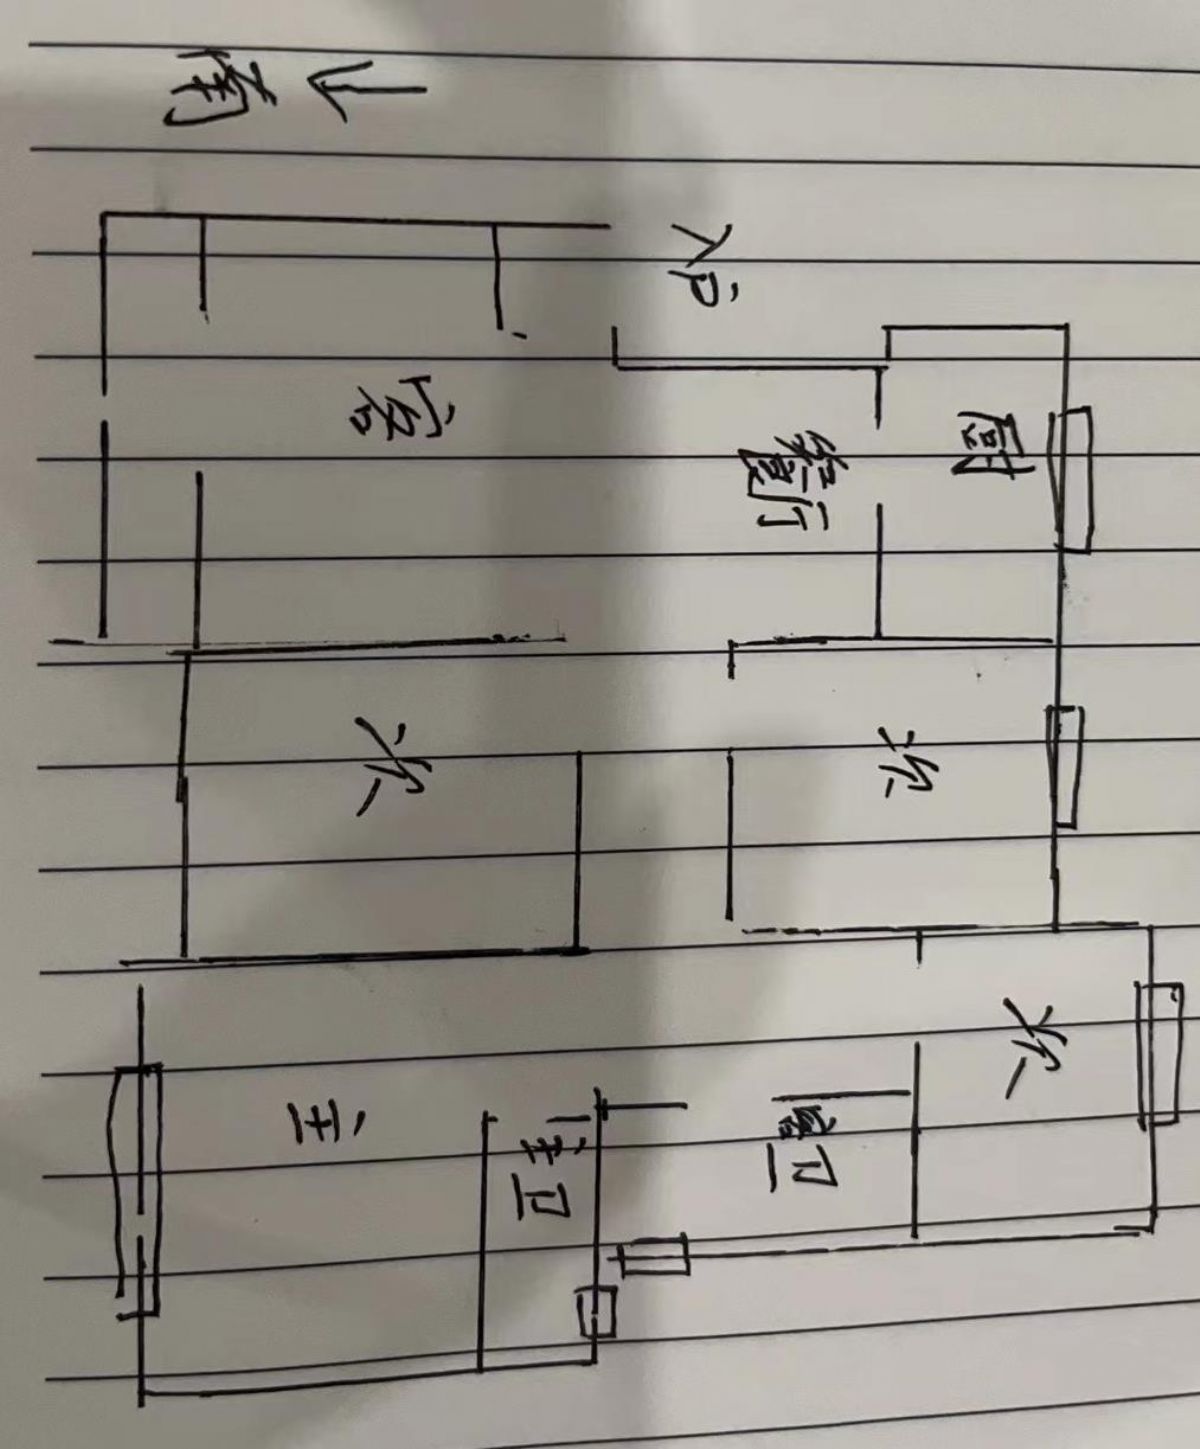 厨
次
次
入户
餐厅
客卫
主卫
客
次
主
南